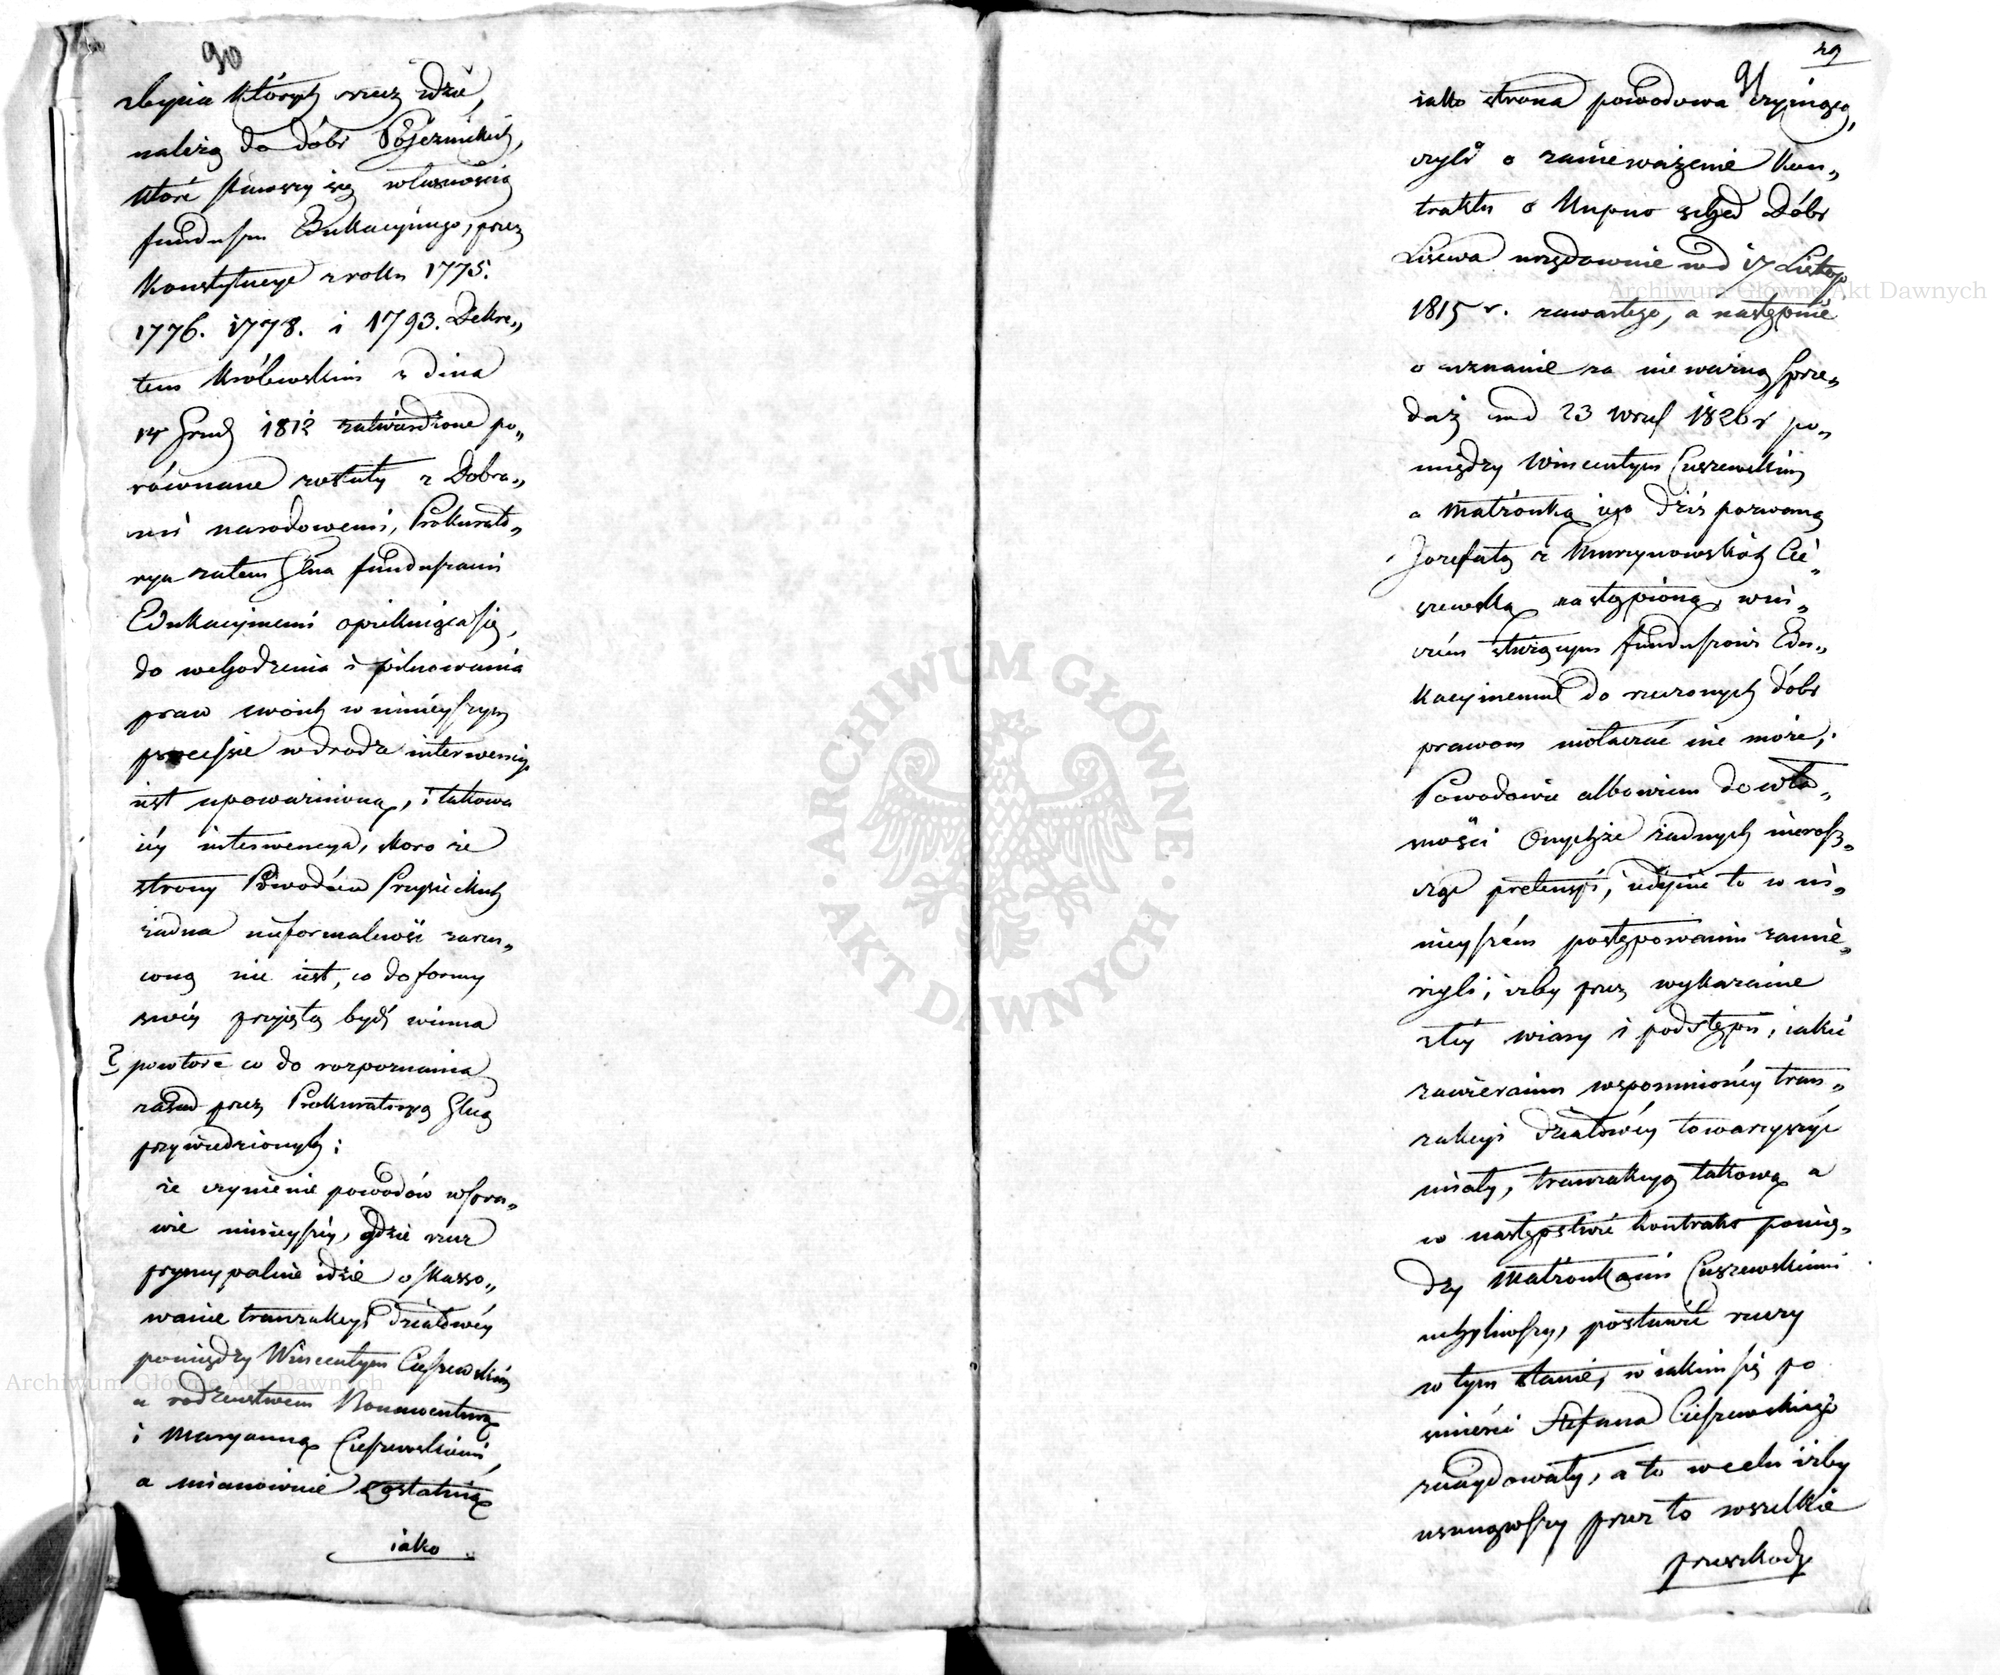 90
zbycia których rzecz idzie,
należą do dóbr Pojezuickich,
które stawszy się własnością
funduszu Edukacyinego, przez
Konstytucye z roku 1775.
1776. 1778. i 1793. Dekre„
tem Królewskim z dnia
14 Grud 1812 zatwierdzone po„
równane zostały z Dobra„
mi narodowemi, Prokurato„
rya zatem Glna funduszami
Edukacyinemi opiekuiąca się,
do wchodzenia i pilnowania
praw swoich w ninieyszym
processie w drodze interwencyi
iest upoważnioną, i takowa
iéy interwencya, skoro ze
strony Powodów Przysieckich
żadna nieformalność zarzu„
coną nie iest, co do formy
swéy przyjętą bydź winna
2 powtóre co do rozpoznania
zasad przez Prokuratoryą Glną
przywiedzionych:
że czynienie powodów w spra„
wie ninieyszéy, gdzie rzecz
pryncypalnie idzie o skasso„
wanie tranzakcyi działowéy
pomiędzy Wincentym Cieszewskim
a rodzeństwem Bonawenturą
i Maryanną Cieszewskiemi,
a mianowicie ostatnią
iako
29
91
iako strona powodowa czyniącą,
czyli o zanieważenie Kon„
traktu o Kupno sched Dóbr
Lisewa urzędownie pod 17 Listop
1815 r. zawartego, a następnie
o uznanie za nieważną sprze„
daż pod 23 Wrześ 1826 r po„
między Wincentym Cieszewskim
a Małżonką iego dziś pozwaną
Jozefatą z Murzynowskich Cie„
szewską nastąpioną, w ni„
czém służącym funduszowi Edu„
kacyinemu do rzeczonych dóbr
prawom uwłaczać nie może;
Powodowie albowiem do wła„
sności Onychże żadnych nierosz„
czą pretensyi, iedynie to w ni„
nieyszém postępowaniu zamie„
rzyli, iżby przez wykazanie
złéy wiary i podstępu, iakie
zawieraniu wspomnionéy tran„
zakcyi działowéy towarzyszyć
miały, tranzakcyą takową a
w następstwie kontrakt pomię„
dzy Małżonkami Cieszewskiemi
uchyliwszy, postawić rzeczy
w tym stanie, w iakim się po
śmierci Stefana Cieszewskiego
znaydowały, a to w celu iżby
usunąwszy przez to wszelkie
przeszkody
ARCHIWUM GŁÓWNE
AKT DAWNYCH
Archiwum Główne Akt Dawnych
Archiwum Główne Akt Dawnych